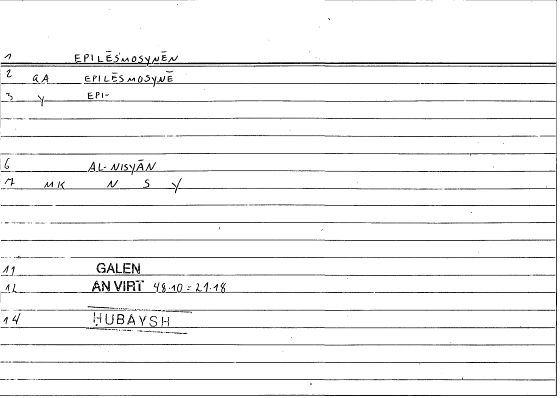 1 EPILĒSMOSYNĒN
2 GA EPILĒSMOSYNĒ
3 Y EPI-
6 AL-NISYĀN
7 MK N S Y
11 GALEN
12 AN VIRT 48.10 = 21.18
14 ḤUBAYSH